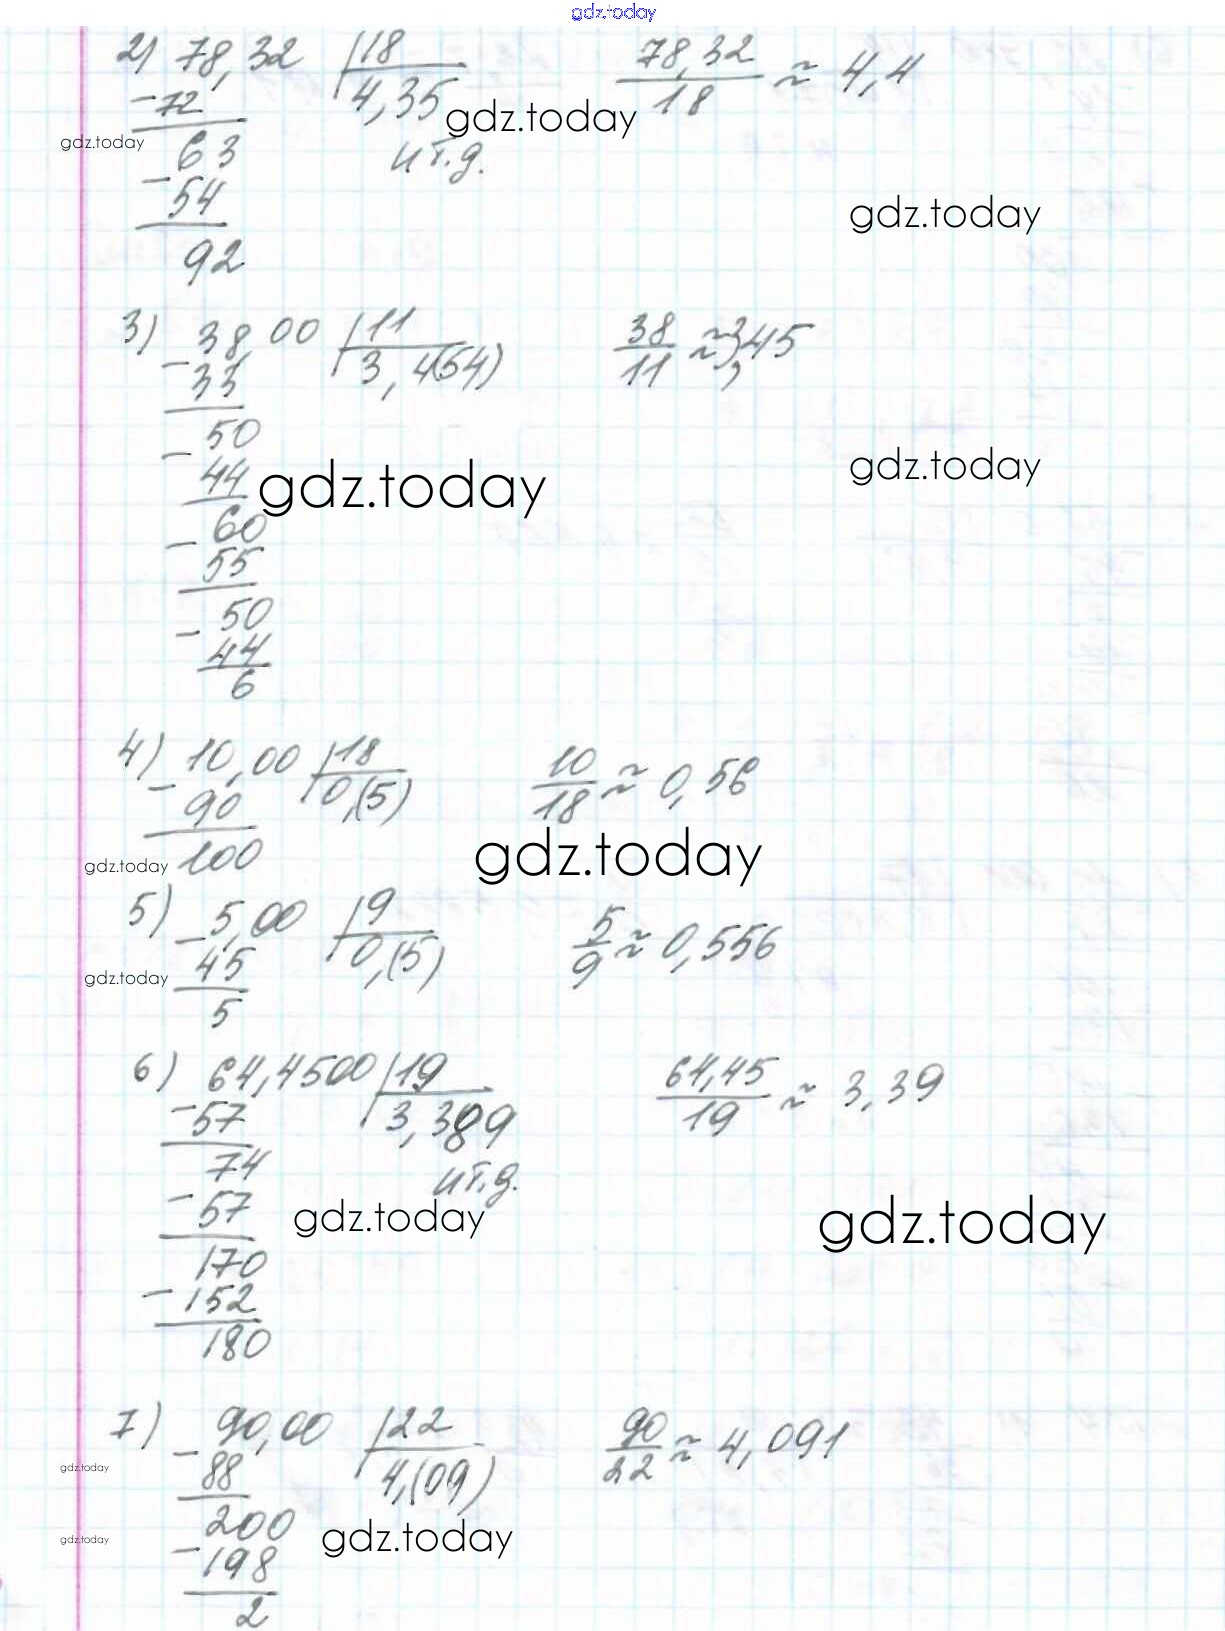 gdz.today
2) 78,32 | 18 78,32/18 ≈ 4,4
-72 4,35
gdz.today
gdz.today 63 и т.д.
-54
gdz.today
92
3) 38,00 | 11 38/11 ≈ 3,45
-33 3,4(54)
50
-44
gdz.today
gdz.today
60
-55
50
-44
6
4) 10,00 | 18 10/18 ≈ 0,56
-90 0,(5)
gdz.today
gdz.today 100
5) 5,00 | 9 5/9 ≈ 0,556
-45 0,(5)
gdz.today
5
6) 64,4500 | 19 64,45/19 ≈ 3,39
-57 3,389
74 и т.д.
-57
gdz.today
gdz.today
170
-152
180
7) 90,00 | 22 90/22 ≈ 4,091
-88 4,(09)
gdz.today
200
gdz.today
gdz.today
-198
2